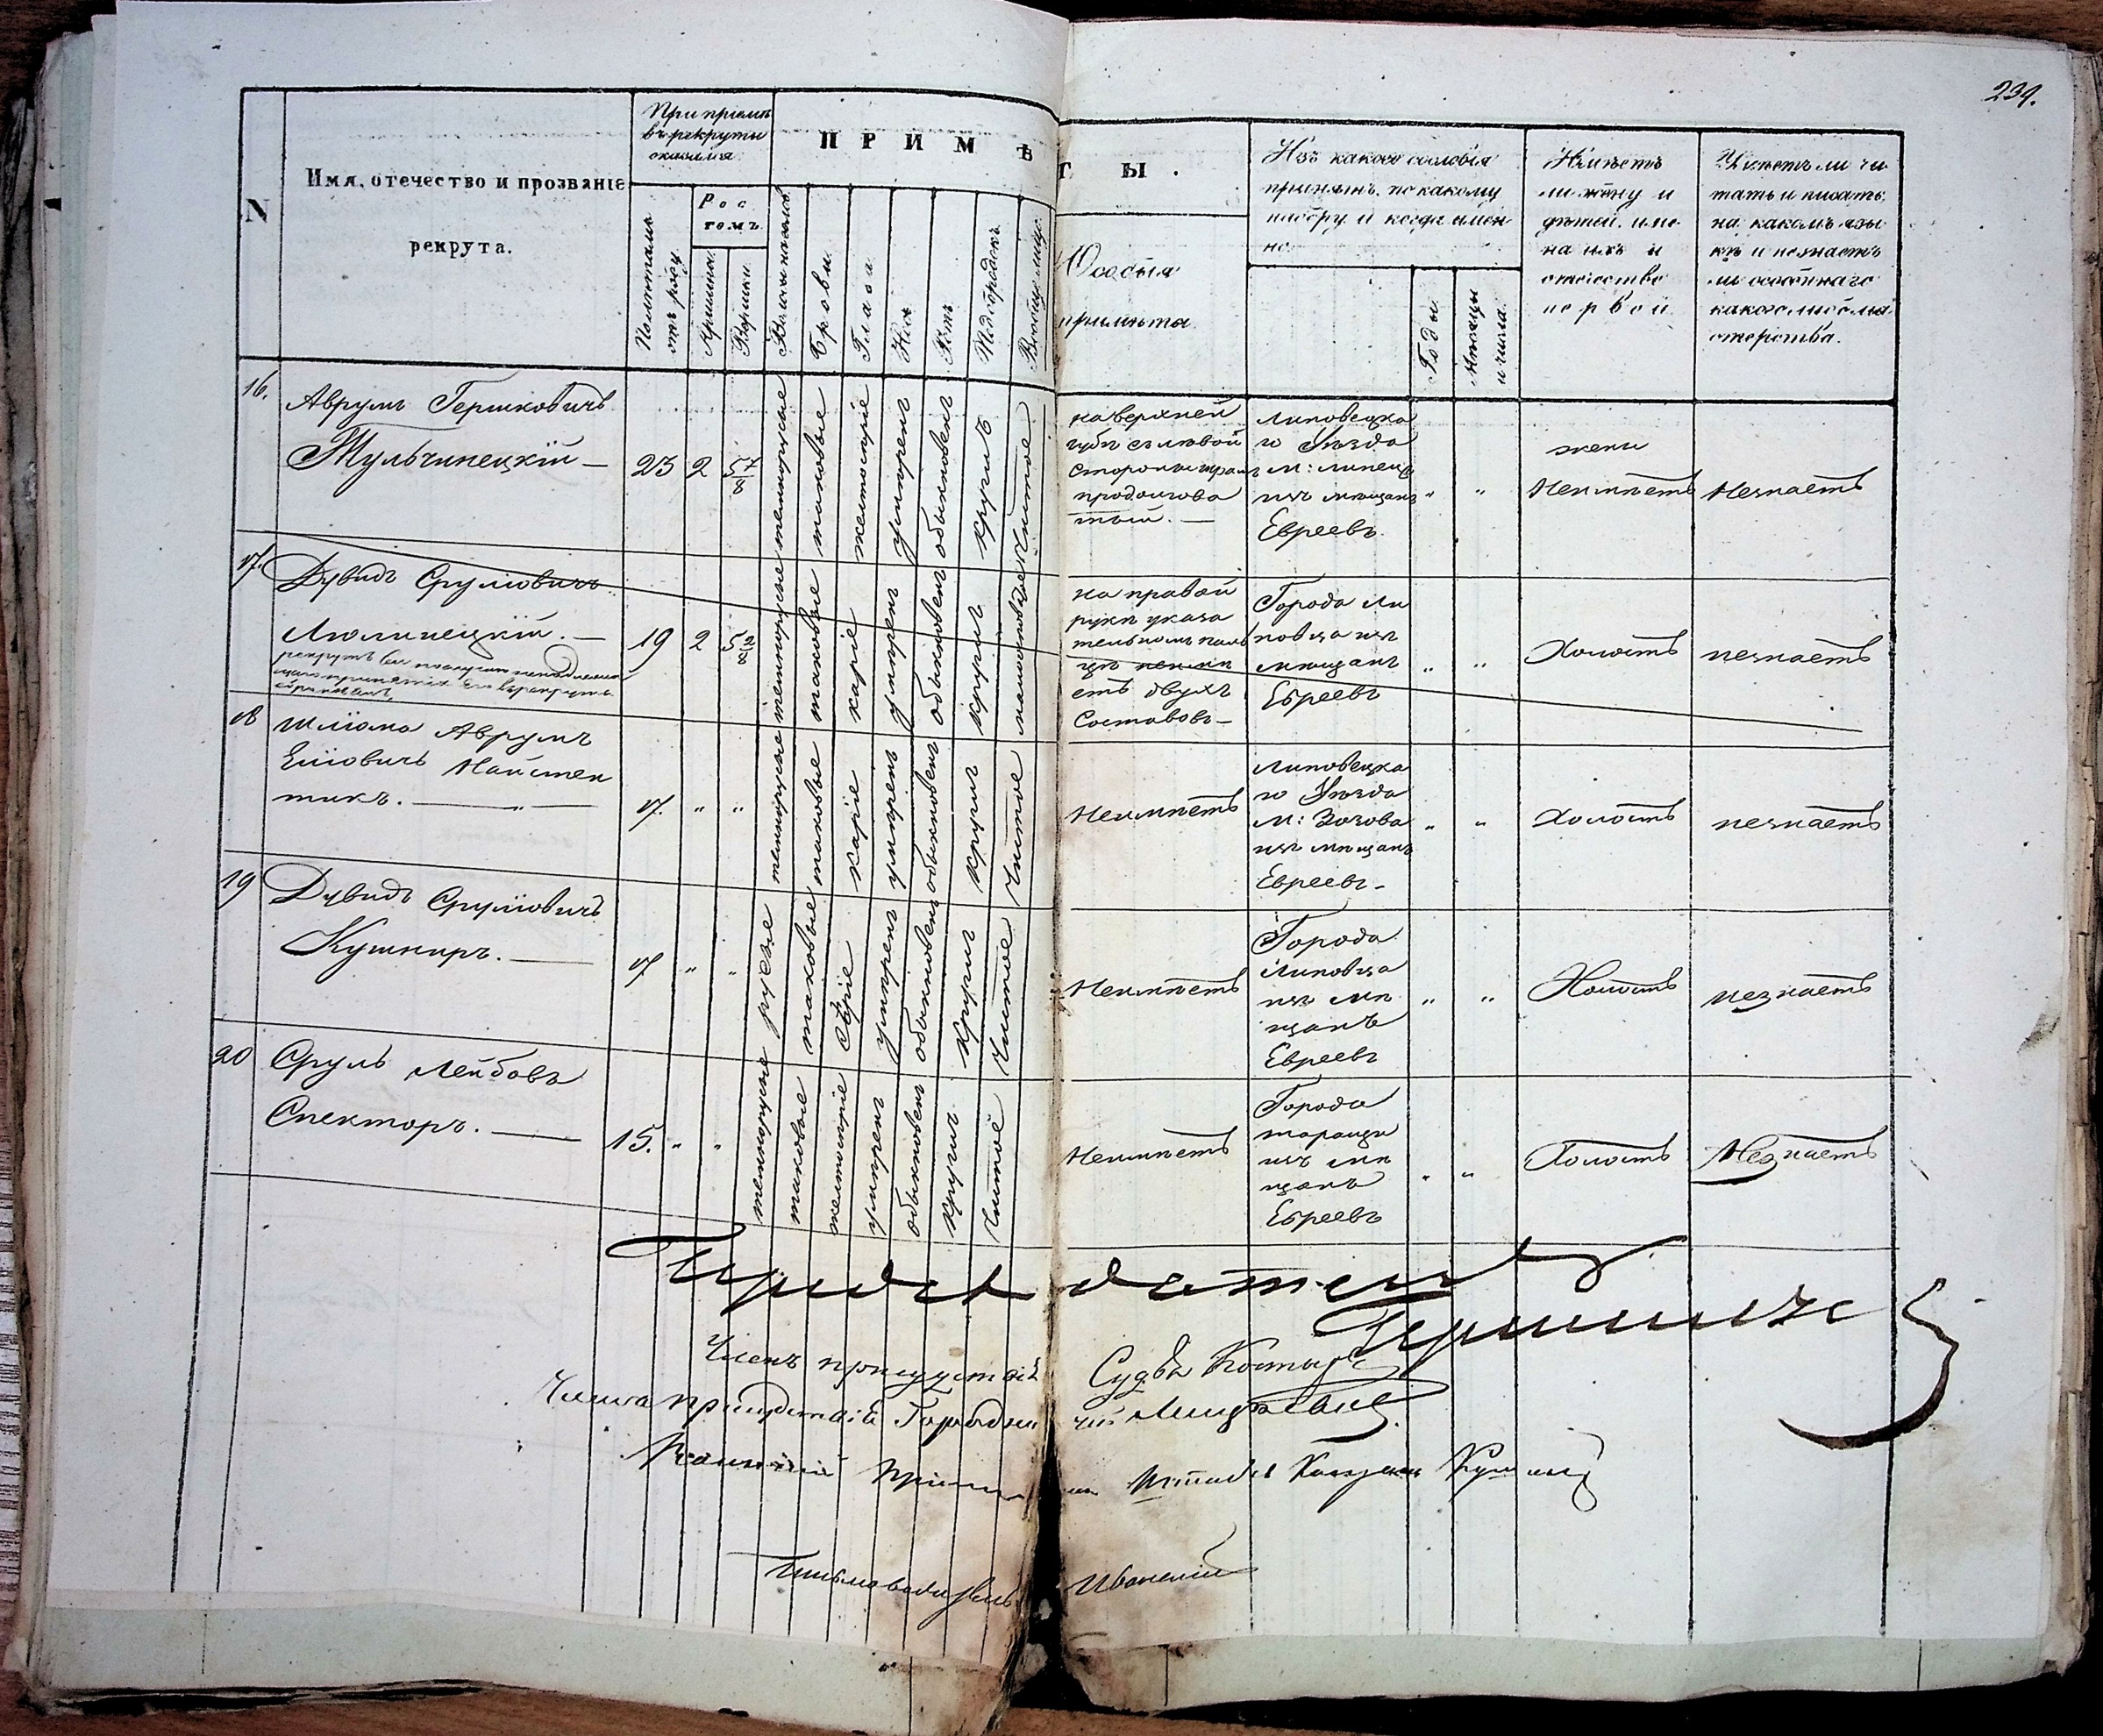 239.
N
Имя, отечество и прозваніе
рекрута.
При пріемѣ
въ рекруты
оказался
Рос
томъ
Полѣтамъ
отъ роду
Аршины
Вершки
ПРИМѢТЫ.
Брови
Глаза
Носъ
Ротъ
Подбородокъ
Вообще лице
Особыя
примѣты
Изъ какого сословія
принятъ, по какому
набору и когда имен
но.
Годы
Мѣсяцы
и числа.
Имѣетъ
ли жену и
дѣтей, име
на ихъ и
отечество
первой
Умѣетъ ли чи
тать и писать,
на какомъ язы
кѣ и незнаетъ
ли особеннаго
какого либо ма
стерства.
16.
Аврумъ Гершковичъ
Тульчинецкій —
23
2
5 7/8
темнорусые
таковые
желтосѣрые
умѣренъ
обыкновенъ
кругилъ
чистое
на верхней
губѣ слѣвой
стороны шрамъ
продолгова
тый. —
Липовецка
го Уѣзда
м: Линецъ
изъ мѣщанъ
Евреевъ
"
"
жены
Неимѣетъ
Незнаетъ
17.
Дувидъ Сруліовичъ
Люлинецкій. —
19
2
5 2/8
темнорусые
таковые
каріе
умѣренъ
обыкновенъ
кругилъ
на правой
рукѣ указа
тельномъ паль
цѣ неимѣ
етъ двухъ
составовъ —
Города Ли
повца изъ
мѣщанъ
Евреевъ
"
"
Холостъ
незнаетъ
18
Шліома Аврумъ
Еліовичъ Найштен
тикъ. — " —
17.
"
"
темнорусые
таковые
каріе
умѣренъ
обыкновенъ
кругилъ
чистое
Неимѣетъ
Липовецка
го Уѣзда
м: Зозова
изъ мѣщанъ
Евреевъ —
"
"
Холостъ
незнаетъ
19
Дувидъ Сруліовичъ
Кушниръ. —
17
"
"
русые
таковые
сѣрые
умѣренъ
обыкновенъ
кругилъ
чистое
Неимѣетъ
Города
Липовца
изъ мѣ
щанъ
Евреевъ
"
"
Холостъ
незнаетъ
20
Сруль Лейбовъ
Спекторъ. —
15.
"
"
темнорусые
таковые
желтосѣрые
умѣренъ
обыкновенъ
кругилъ
чистое
Неимѣетъ
Города
Таращи
изъ мѣ
щанъ
Евреевъ
"
"
Холостъ
Незнаетъ
Предсѣдатель
Членъ присудствія Судья
Члена присудствія Городничій
Военный Пріемщикъ Штабсъ Капитанъ
Письмоводитель Иванскій